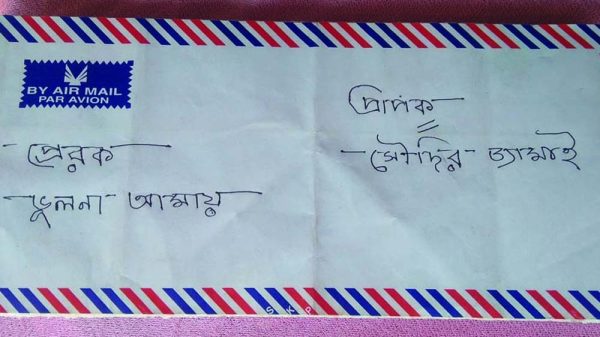 BY AIR MAIL
PAR AVION
প্রেরক
ভুলনা আমায়
প্রাপক
সৌদির জামাই
S K P